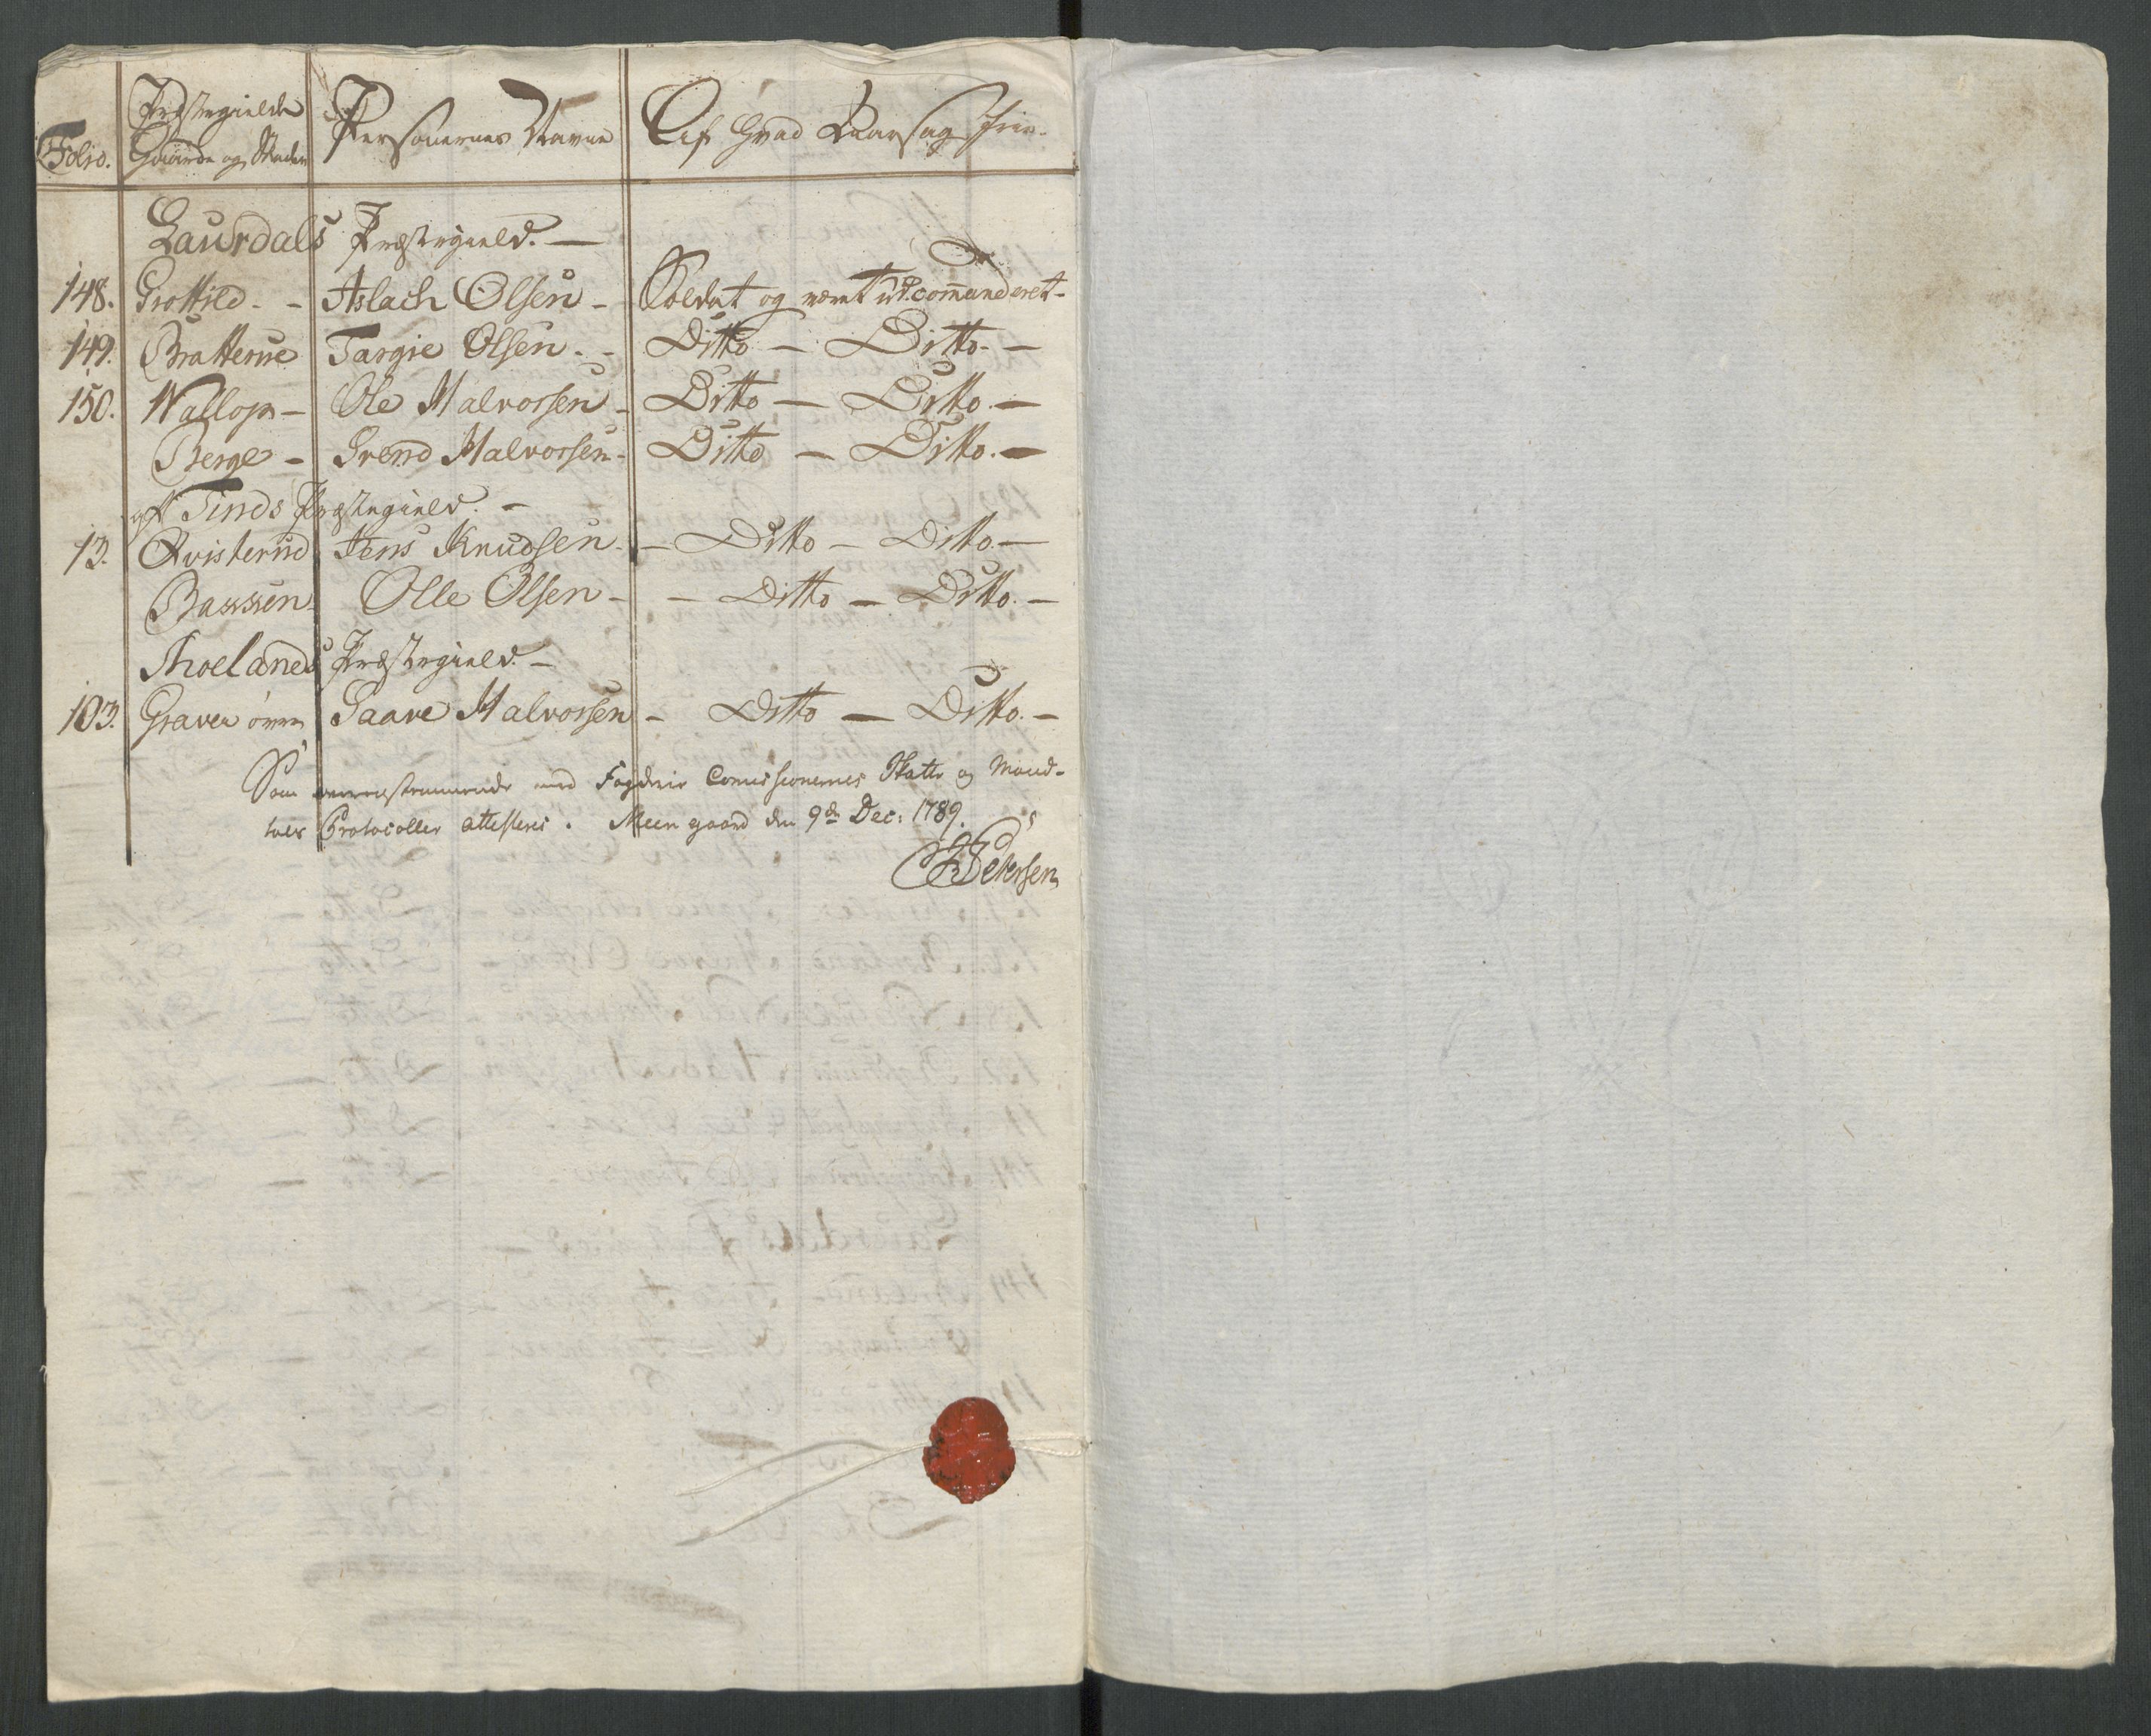 Folio. Præstegielde Gaarde og Stæder Personernes Navne Af hvad Aarsag frie.
Laurdals Præstegield. —
148. Grottild - - Aslach Olsen - Soldat og været udcommanderet -
149. Bratterue Targie Olsen. - Ditto — Ditto. —
150. Wallop — Ole Halvorsen - Ditto — Ditto. —
Berge - Svend Halvorsen - Ditto — Ditto. —
af Tinds Præstegield. -
13. Qvisterud Jens Knudsen - - Ditto - Ditto. —
Olle Olsen - - Ditto — Ditto. —
Moelands Præstegield. —
103. Graven øvre Saave Halvorsen - Ditto — Ditto. —
Som overensstemmende med Fogderie Comissionernes Skatte og Mand-
tals Protocoller attesteres. Meen gaard den 9de Dec: 1789.
Petersen